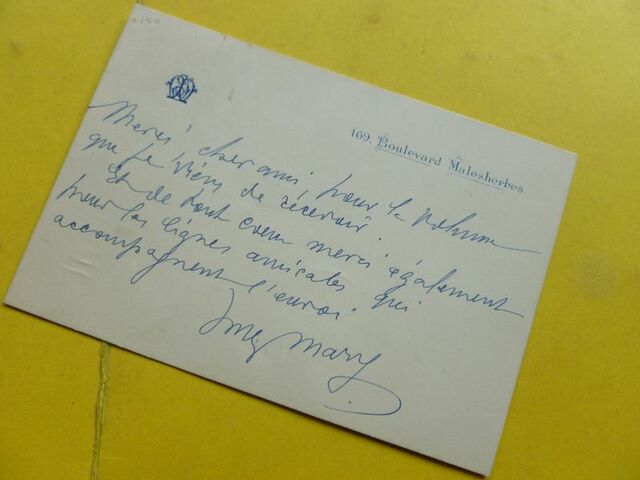 169, Boulevard Malesherbes
Merci, cher ami, pour le volume
que je viens de recevoir.
Et de tout coeur merci également
pour les lignes amicales qui
accompagnent l'envoi.
Mary